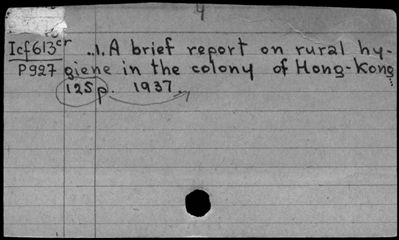 4
Icf613cr ..1. A brief report on rural hy-
P927 giene in the colony of Hong-Kong
125p. 1937.